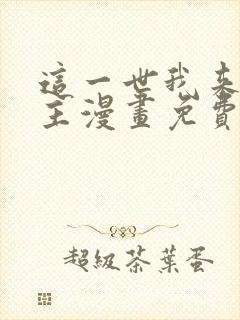 這一世我來
主漫畫免費
超級茶葉蛋